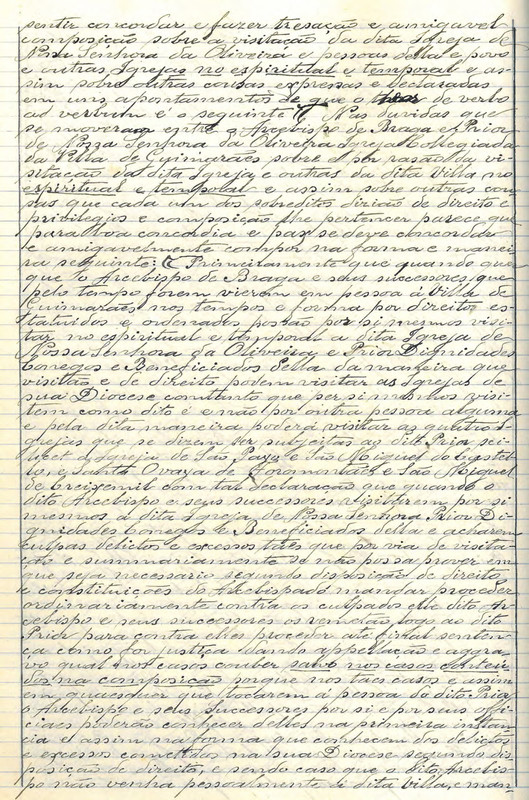 sentir concordar e fazer tresação e amigavel
composição sobre a visitação da dita Igreja de
Nossa Senhora da Oliveira e pessoas della e povo
e outras Igrejas no espiritual e temporal e as-
sim sobre outras cousas expressas e declaradas
em uns apontamentos de que o theor de verbo
ad verbum é o seguinte Nas duvidas que
se moveram entre o Arcebispo de Braga e Prior
de Nossa Senhora da Oliveira Igreja Collegiada
da Villa de Guimarães sobre e por rasão da vi-
sitação da dita Igreja e outras da dita Villa no
espiritual e temporal e assim sobre outras cou-
sas que cada um dos sobreditos dirião de direito e
privilegios e composição lhe pertencer parece que
para boa concordia e paz se deve concordar
e amigavelmente compor na forma e manei-
ra seguinte: Primeiramente que quando quer
que o Arcebispo de Braga e seus successores que
pelo tempo forem vierem em pessoa á Villa de
Guimarães nos tempos e forma por direitos es-
tatuidos e ordenados possão por si mesmos visi-
tar no espiritual e temporal a dita Igreja de
Nossa Senhora da Oliveira e Prior Dignidades
Conegos e Beneficiados della da maneira que
visitão e de direito podem visitar as Igrejas de
sua Diocese comtanto que per si mesmos visi-
tem como dito é e não por outra pessoa alguma
e pela dita maneira poderá visitar as quatro I-
grejas que se dizem ser subjeitas ao dito Prior sci-
licet a Igreja de São Payo e São Miguel do Castel-
lo, e Santa Ovaya de e São Miguel
de Creixemil com tal declaração que quando o
dito Arcebispo e seus successores visitarem por si
mesmos a dita Igreja de Nossa Senhora Prior Di-
gnidades Conegos e Beneficiados della e acharem
culpas delictos e excessos taes que por via de visita-
ção e summariamente se não possa prover em
que seja necessario segundo disposição de direito
e constituições do Arcebispado mandar proceder
ordinariamente contra os culpados elle dito Ar-
cebispo e seus successores os remetão logo ao dito
Prior para contra elles proceder até final senten-
ça como for justiça dando appellação e aggra-
vo qual nos casos couber salvo nos casos conteu-
dos na composição porque nos taes casos e assim
em quaesquer que tocarem á pessoa do dito Prior
o Arcebispo e seus successores por si e por seus offi-
ciaes poderão conhecer delles na primeira instan-
cia e assim na forma que conhecem dos delictos
e excessos comettidos na sua Diocese segundo dis-
posição de direito, e sendo caso que o dito Arcebis-
po não venha pessoalmente á dita Villa, e man-